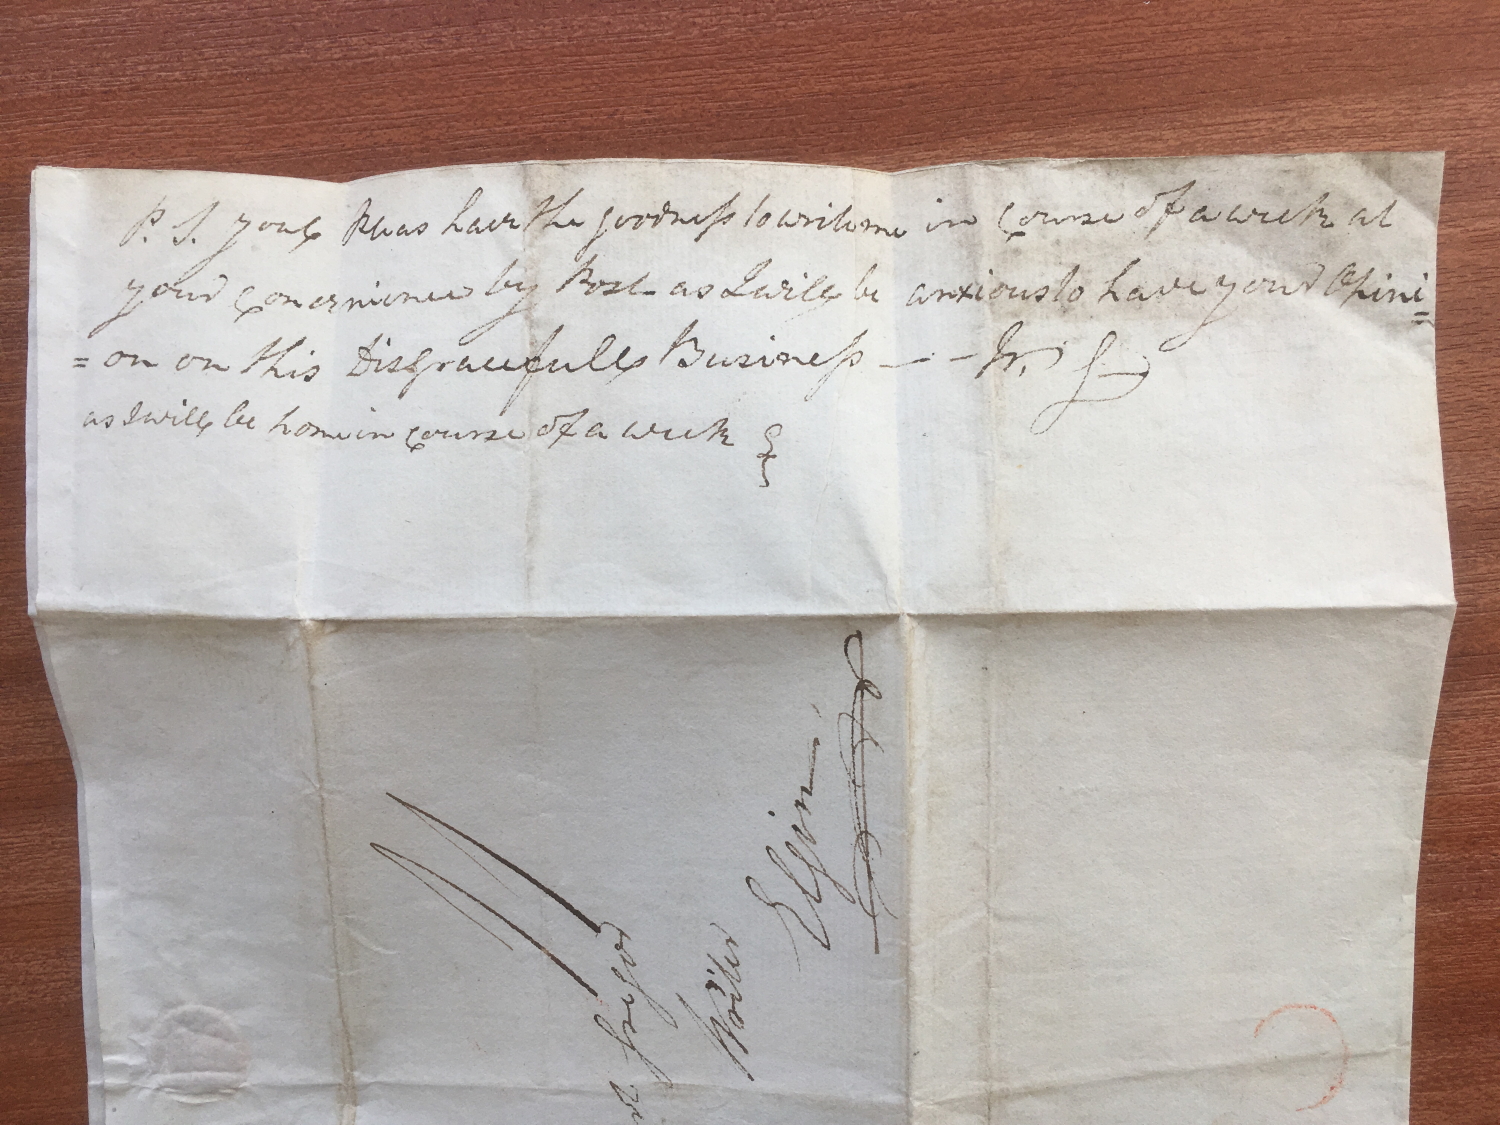 P. S. youll Pleas have the goodness to write me in course of a week at
your convenience by Post as I will be anxious to have your Opini
=on on this Disgracefull Business — — Jr. S
as I will be home in course of a week
Writer
Elgin